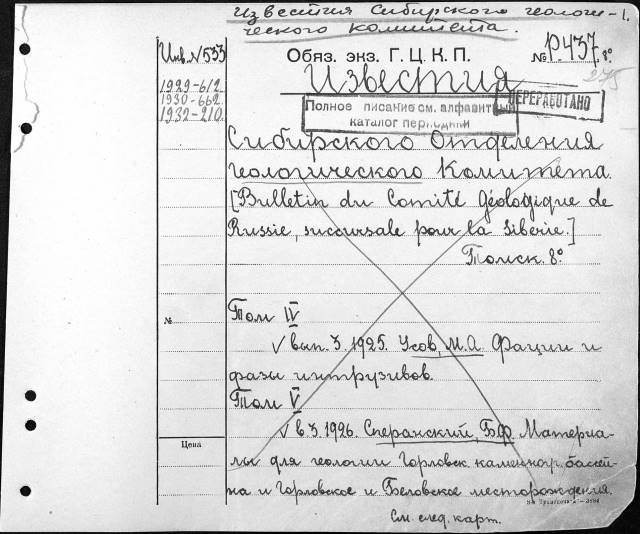 Известия Сибирского геологи- 1.
ческого комитета.
Инв. № 533
Обяз. экз. Г.Ц.К.П.
№ Р437 8°
275
1929-612.
1930-662.
1932-210.
Известия
ПЕРЕРАБОТАНО
Полное писание см. алфавитный
каталог периодики
Сибирского Отделения
Геологического Комитета.
[Bulletin du Comité géologique de
Russie, succursale pour la Siberie.]
Томск. 8°.
№
Том IV
√ вып. 3. 1925. Усов, М.А. Фации и
фазы интрузивов.
Том V
√ в. 3. 1926. Сперанский, Б.Ф. Материа-
Цена
лы для геологии Горловск. каменноуг. бассей-
на и Горловское и Беловское месторождения.
См. след. карт.